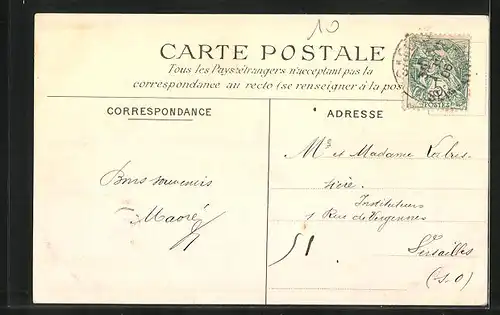 10
CARTE POSTALE
Tous les Pays étrangers n'acceptant pas la
correspondance au recto (se renseigner à la pos
CORRESPONDANCE
ADRESSE
Bons souvenirs
Mrs et Madame
Instituteurs
1 Rue de Vergennes
51
Versailles
(S-O)
POSTES